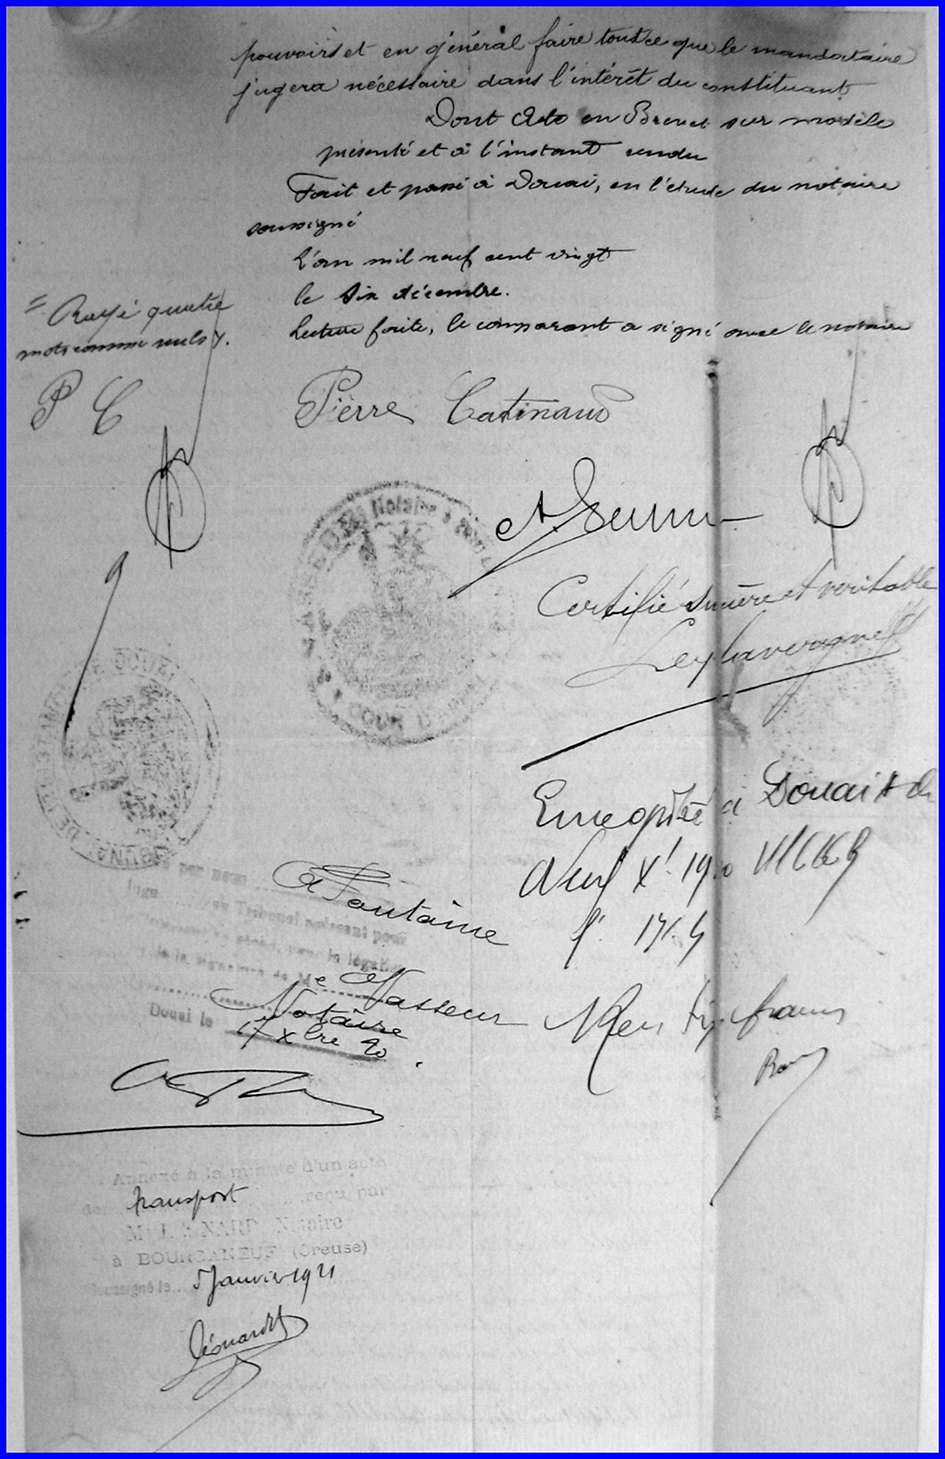 pouvoirs et en général faire tout ce que le mandataire
jugera nécessaire dans l'intérêt du constituant
Dont Acte en Brevet sur modèle
présenté et à l'instant rendu
Fait et passé à Douai, en l'étude du notaire
soussigné
L'an mil neuf cent vingt
le Six décembre.
Lecture faite, le comparant a signé avec le notaire
= Rayé quatre
mots comme nuls
P C
Pierre Catinaud
Notaire à
COUR D'APPEL
Certifié sincère et veritable
Leylavergne
DOUAI
Enregistré à Douai
Neuf Xbre 1920
par nous
Juge au Tribunal
Fontaine
pour la légalisation
de la signature de Me
Vasseur
Notaire
Douai le 17 Xbre 20
francs
Annexé à la minute d'un acte
de transport reçu par
Me LÉONARD Notaire
à BOURGANEUF (Creuse)
soussigné le 5 Janvier 1921
Léonard